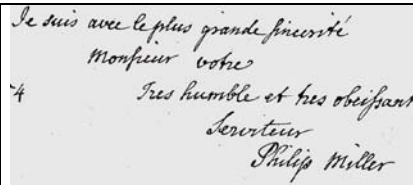 Je suis avec le plus grande sincerité
Monsieur votre
4 Tres humble et tres obeissant
Serviteur
Philip Miller